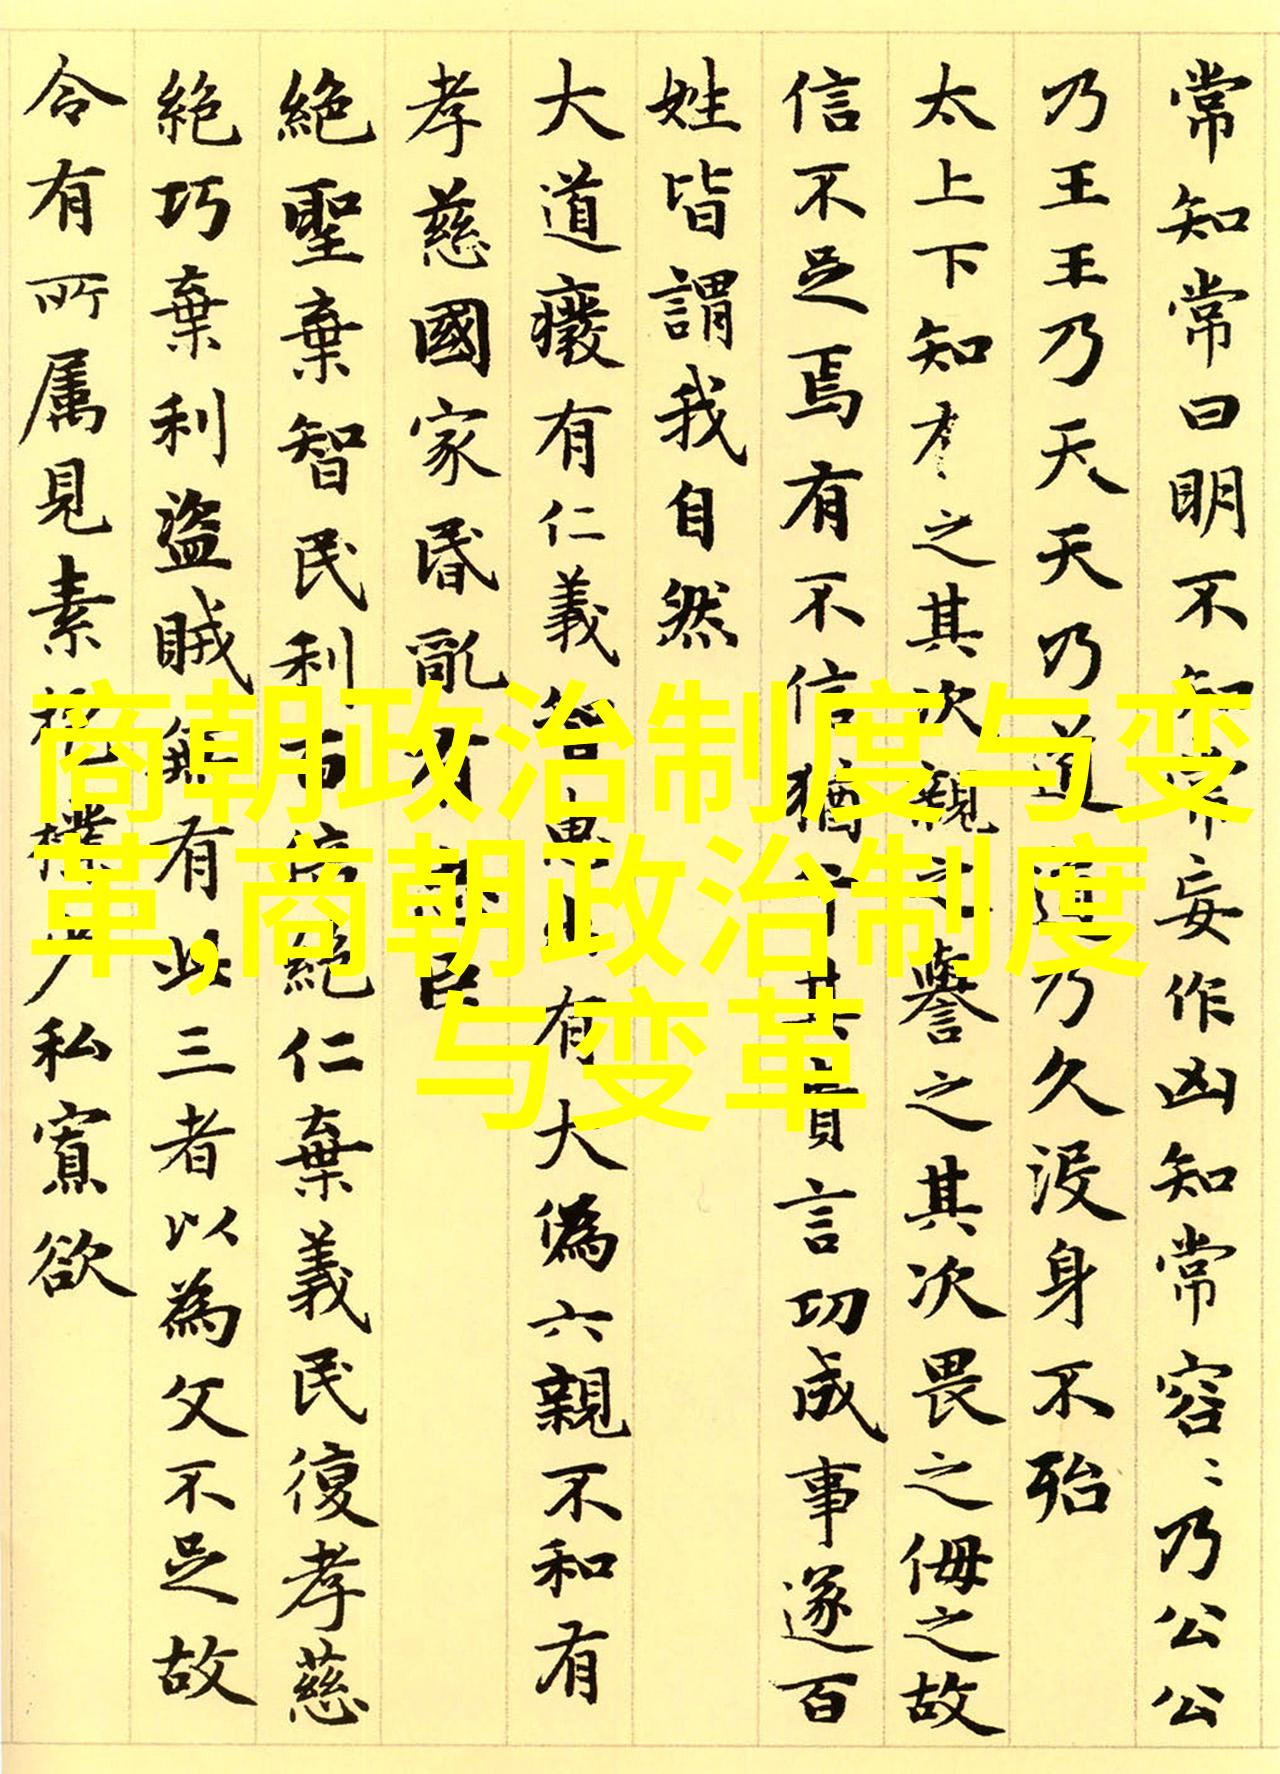 常知常曰明不知常妄作凶知常容〻乃公公
乃王王乃天天乃道道乃久没身不殆
太上下知有之其次親之譽之其次畏之侮之故
信不足焉有不信猶兮其貴言功成事遂百
姓皆謂我自然
大道癈有仁義智惠出有大偽六親不和有
孝慈國家昏亂有忠臣
絶聖棄智民利百倍絶仁棄義民復孝慈
絶巧棄利盗賊無有此三者以為文不足故
令有所属見素抱樸少私寡欲
商朝政治制度与变
革,商朝政治制度
与变革